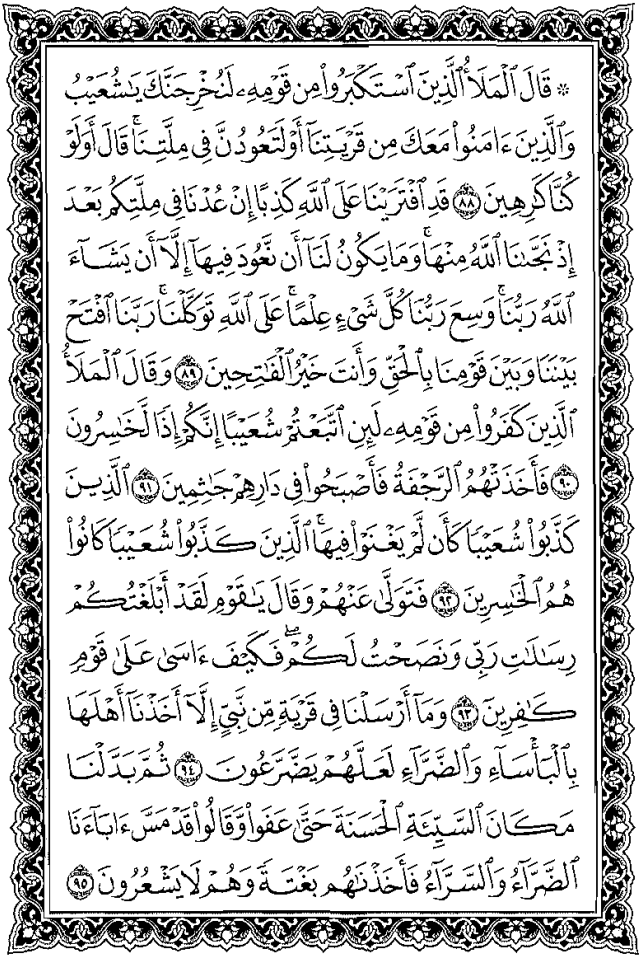 ۞ قَالَ ٱلْمَلَأُ ٱلَّذِينَ ٱسْتَكْبَرُواْ مِن قَوْمِهِۦ لَنُخْرِجَنَّكَ يَٰشُعَيْبُ
وَٱلَّذِينَ ءَامَنُواْ مَعَكَ مِن قَرْيَتِنَآ أَوْ لَتَعُودُنَّ فِى مِلَّتِنَا ۚ قَالَ أَوَلَوْ
كُنَّا كَٰرِهِينَ ٨٨ قَدِ ٱفْتَرَيْنَا عَلَى ٱللَّهِ كَذِبًا إِنْ عُدْنَا فِى مِلَّتِكُم بَعْدَ
إِذْ نَجَّىٰنَا ٱللَّهُ مِنْهَا ۚ وَمَا يَكُونُ لَنَآ أَن نَّعُودَ فِيهَآ إِلَّآ أَن يَشَآءَ
ٱللَّهُ رَبُّنَا ۚ وَسِعَ رَبُّنَا كُلَّ شَىْءٍ عِلْمًا ۚ عَلَى ٱللَّهِ تَوَكَّلْنَا ۚ رَبَّنَا ٱفْتَحْ
بَيْنَنَا وَبَيْنَ قَوْمِنَا بِٱلْحَقِّ وَأَنتَ خَيْرُ ٱلْفَٰتِحِينَ ٨٩ وَقَالَ ٱلْمَلَأُ
ٱلَّذِينَ كَفَرُواْ مِن قَوْمِهِۦ لَئِنِ ٱتَّبَعْتُمْ شُعَيْبًا إِنَّكُمْ إِذًا لَّخَٰسِرُونَ
٩٠ فَأَخَذَتْهُمُ ٱلرَّجْفَةُ فَأَصْبَحُواْ فِى دَارِهِمْ جَٰثِمِينَ ٩١ ٱلَّذِينَ
كَذَّبُواْ شُعَيْبًا كَأَن لَّمْ يَغْنَوْاْ فِيهَا ۚ ٱلَّذِينَ كَذَّبُواْ شُعَيْبًا كَانُواْ
هُمُ ٱلْخَٰسِرِينَ ٩٢ فَتَوَلَّىٰ عَنْهُمْ وَقَالَ يَٰقَوْمِ لَقَدْ أَبْلَغْتُكُمْ
رِسَٰلَٰتِ رَبِّى وَنَصَحْتُ لَكُمْ ۖ فَكَيْفَ ءَاسَىٰ عَلَىٰ قَوْمٍ
كَٰفِرِينَ ٩٣ وَمَآ أَرْسَلْنَا فِى قَرْيَةٍ مِّن نَّبِىٍّ إِلَّآ أَخَذْنَآ أَهْلَهَا
بِٱلْبَأْسَآءِ وَٱلضَّرَّآءِ لَعَلَّهُمْ يَضَّرَّعُونَ ٩٤ ثُمَّ بَدَّلْنَا
مَكَانَ ٱلسَّيِّئَةِ ٱلْحَسَنَةَ حَتَّىٰ عَفَواْ وَّقَالُواْ قَدْ مَسَّ ءَابَآءَنَا
ٱلضَّرَّآءُ وَٱلسَّرَّآءُ فَأَخَذْنَٰهُم بَغْتَةً وَهُمْ لَا يَشْعُرُونَ ٩٥